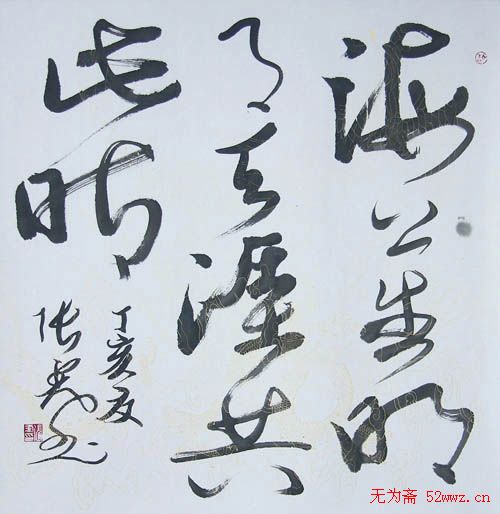 海上生明
月天涯共
此时
丁亥夏
张
无为斋 52wwz.cn